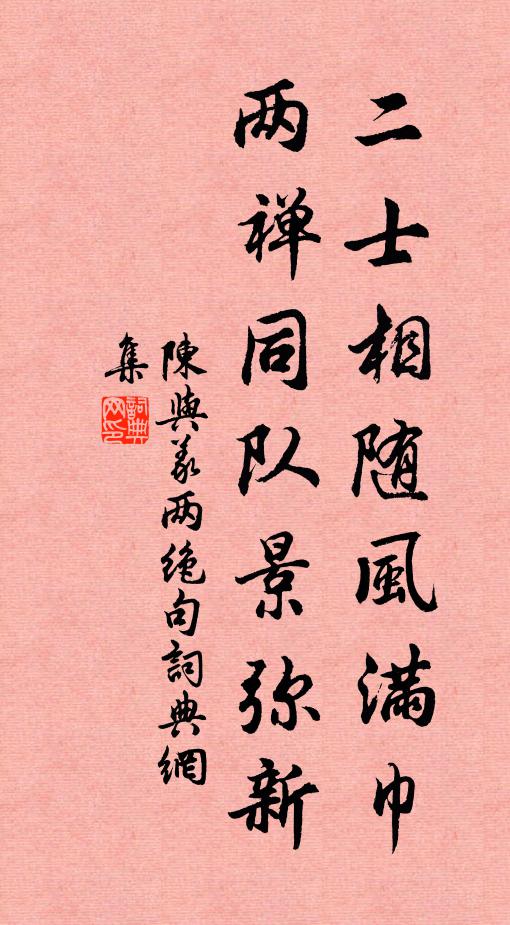 二士相随風满巾
两禅同队景弥新
陳與义两绝句詞典網
集
詞典网印